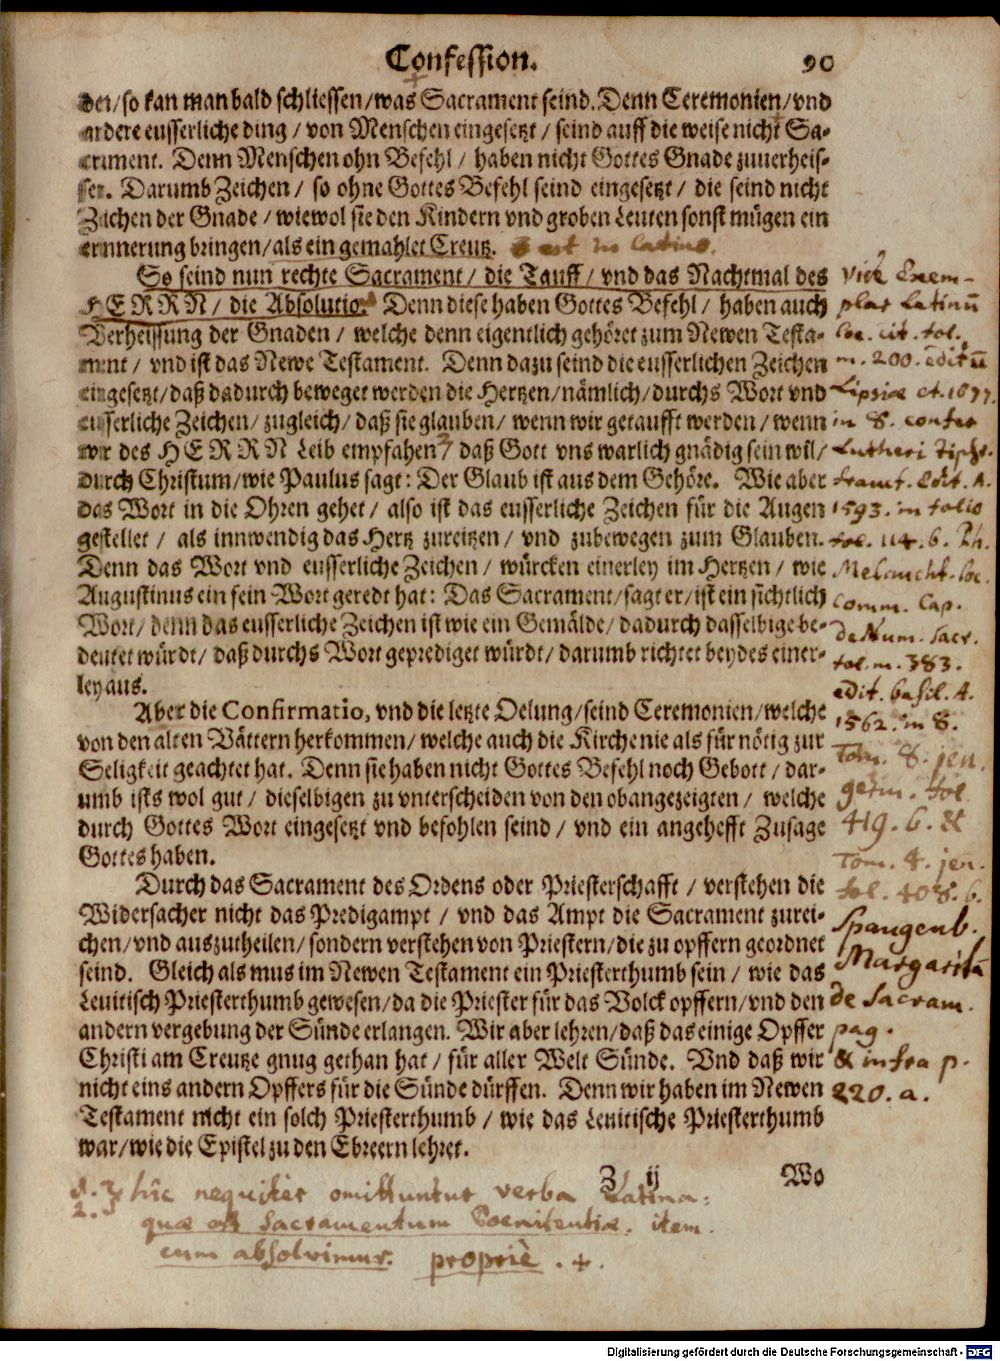 Confession. 90
det/so kan man bald schliessen/was Sacrament seind. Denn Ceremonien/vnd
andere eusserliche ding / von Menschen eingesetzt / seind auff die weise nicht Sa-
crament. Denn Menschen ohn Befehl / haben nicht Gottes Gnade zuuerheis-
sen. Darumb Zeichen / so ohne Gottes Befehl seind eingesetzt / die seind nicht
Zeichen der Gnade / wiewol sie den Kindern vnd groben Leuten sonst mügen ein
erinnerung bringen/als ein gemahlet Creutz. est in latino.
So seind nun rechte Sacrament / die Tauff / vnd das Nachtmal des
HERRN / die Absolutio. Denn diese haben Gottes Befehl / haben auch
Verheissung der Gnaden / welche denn eigentlich gehöret zum Newen Testa-
ment / vnd ist das Newe Testament. Denn dazu seind die eusserlichen Zeichen
eingesetzt/daß dadurch beweget werden die Hertzen/nämlich/durchs Wort vnd
eusserliche Zeichen/zugleich/daß sie glauben/wenn wir getaufft werden/wenn
wir des HERRN Leib empfahen/ daß Gott vns warlich gnädig sein wil/
durch Christum/wie Paulus sagt: Der Glaub ist aus dem Gehöre. Wie aber
das Wort in die Ohren gehet / also ist das eusserliche Zeichen für die Augen
gestellet / als innwendig das Hertz zureitzen / vnd zubewegen zum Glauben.
Denn das Wort vnd eusserliche Zeichen / würcken einerley im Hertzen / wie
Augustinus ein fein Wort geredt hat: Das Sacrament/sagt er/ist ein sichtlich
Wort/denn das eusserliche Zeichen ist wie ein Gemälde/dadurch dasselbige be-
deutet würdt/ daß durchs Wort geprediget würdt/darumb richtet beydes einer-
ley aus.
Aber die Confirmatio, vnd die letzte Oelung/seind Ceremonien/welche
von den alten Vättern herkommen/welche auch die Kirche nie als für nötig zur
Seligkeit geachtet hat. Denn sie haben nicht Gottes Befehl noch Gebott / dar-
umb ists wol gut / dieselbigen zu vnterscheiden von den obangezeigten / welche
durch Gottes Wort eingesetzt vnd befohlen seind / vnd ein angehefft Zusage
Gottes haben.
Durch das Sacrament des Ordens oder Priesterschafft / verstehen die
Widersacher nicht das Predigampt / vnd das Ampt die Sacrament zurei-
chen/vnd auszutheilen/sondern verstehen von Priestern/die zu opffern geordnet
seind. Gleich als mus im Newen Testament ein Priesterthumb sein / wie das
Leuitisch Priesterthumb gewesen/da die Priester für das Volck opffern/vnd den
andern vergebung der Sünde erlangen. Wir aber lehren/daß das einige Opffer
Christi am Creutze gnug gethan hat / für aller Welt Sünde. Vnd daß wir
nicht eins andern Opffers für die Sünde dürffen. Denn wir haben im Newen
Testament nicht ein solch Priesterthumb / wie das Leuitische Priesterthumb
war/wie die Epistel zu den Ebreern lehret.
Z ij Wo
Exem-
plar Latinū
loc. cit. fol.
m. 200. editū
Lipsiæ
in 8. confer
Lutheri Tisch.
Edit. A.
1593. in folio
fol. 114. b. Ph.
Melancht. loc.
comm. Cap.
de Num. Sacr.
fol. m. 383.
edit. basil. A.
1562. in 8.
Tom. 8. jen.
germ. fol
419. b. &
Tom. 4. jen.
fol. 408. b.
Spangenb.
Margaritā
de Sacram.
pag.
& infra p.
220. a.
1. hîc nequiter omittuntur verba Latina:
2. quæ est Sacramentum Poenitentiæ. item.
cum absolvimur. propriè. +.